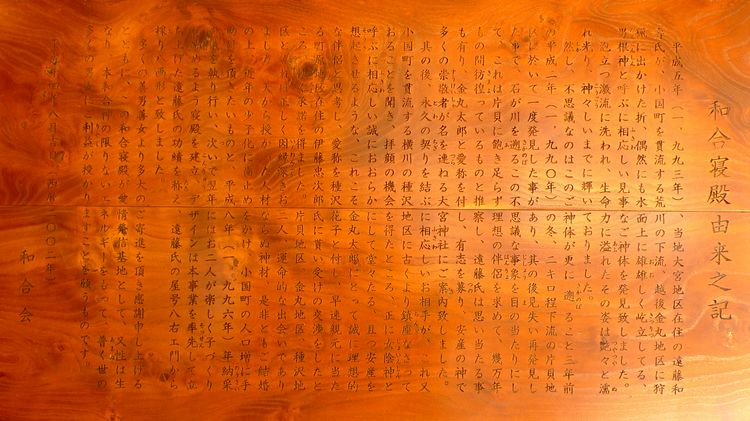 和合寝殿由来之記
平成五年（一、九九三年）、当地大宮地区在住の遠藤和
氏が、小国町を貫流する荒川の下流、越後金丸地区に狩
猟に出かけた折、偶然にも水面上に雄雄しく屹立してる、
男根神と呼ぶに相応しい見事なご神体を発見致しました。
泡立つ激流に洗われ、生命力に溢れたその姿は艶々と濡
れ光り、神々しいまでに輝いておりました。
然し、不思議なのはこのご神体が更に遡ること三年前
の平成一年（一、九九〇年）の冬、二キロ程下流の片貝地
区に於いて一度発見した事があり、其の後見失い再発見し
た事で、石が川を遡るこの不思議な事象を目の当たりにし
て、これは片貝に飽き足らず理想の伴侶を求めて、幾万年
もの間彷徨っているものと推察し、遠藤氏は思い当たる事
も有り、金丸太郎と愛称を付し、有志を募り、安産の神で
多くの崇敬者が名を連ねる大宮神社にご案内致しました。
其の後、永久の契りを結ぶに相応しいお相手が、これ又
小国町を貫流する横川の種沢地区に古くより鎮座なさって
おることを聞き、拝顔の機会を得たところ、正に女陰神と
呼ぶに相応しい誠におおらかにして堂々たる、且つ安産を
想起させるような、これこそ金丸太郎にとって誠に理想的
な伴侶と思考し、愛称を種沢花子と付し、早速親元に当た
る町原地区在住の伊藤忠次郎氏に貰い受けの交渉をしたと
ころ、承諾を得ました。片貝地区、金丸地区、種沢地
区と、これ正しく因縁深きお二人の運命的な出会いであり
ましょう。天から授かりし材ならぬ神材、是非ともご結婚
の上、近年の少子化に歯止めをかけ、小国町の人口増に手
助けを頂きたいものと、平成八年（一、九九六年）年納采
の儀を執り行い、次いで翌年にはお二人が楽しく子づくり
に励めるよう寝殿を建立、デザインは本事業を率先して立
ち上げた遠藤氏の功績を称え、遠藤氏の屋号八右エ門から
採り八画形と致しました。
多くの善男善女より多大のご寄進を頂き感謝申し上げる
とともに、この和合寝殿が愛情発信基地として、又性は生
なり、本和合神の限りないエネルギーをもって、普く世の
多くの男女に、ご利益が授かりますことを願うものです。
和合会